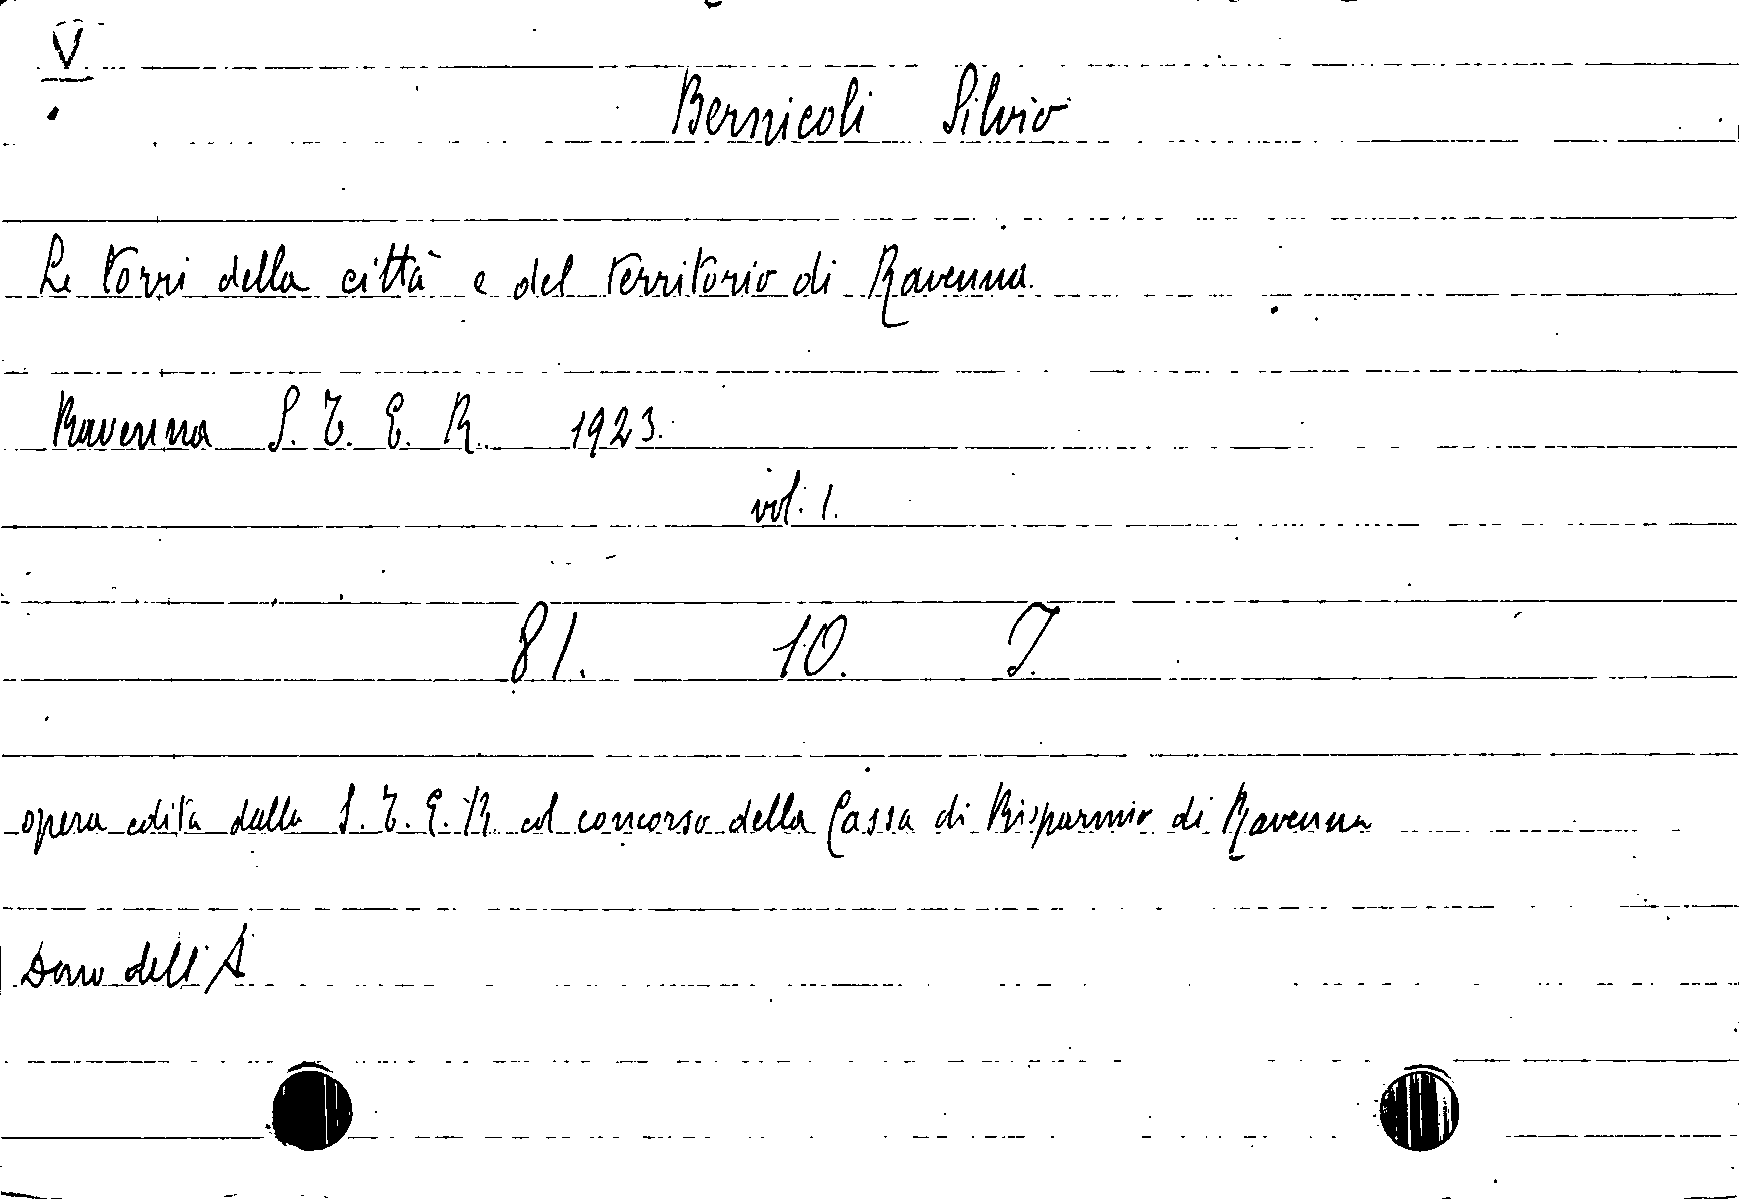 V
Bernicoli Silvio
Le torri della città e del territorio di Ravenna.
Ravenna S. T. E. R. 1923.
vol. 1.
81. 10. T.
opera edita dalla S. T. E. R. col concorso della Cassa di Risparmio di Ravenna
Dono dell'A